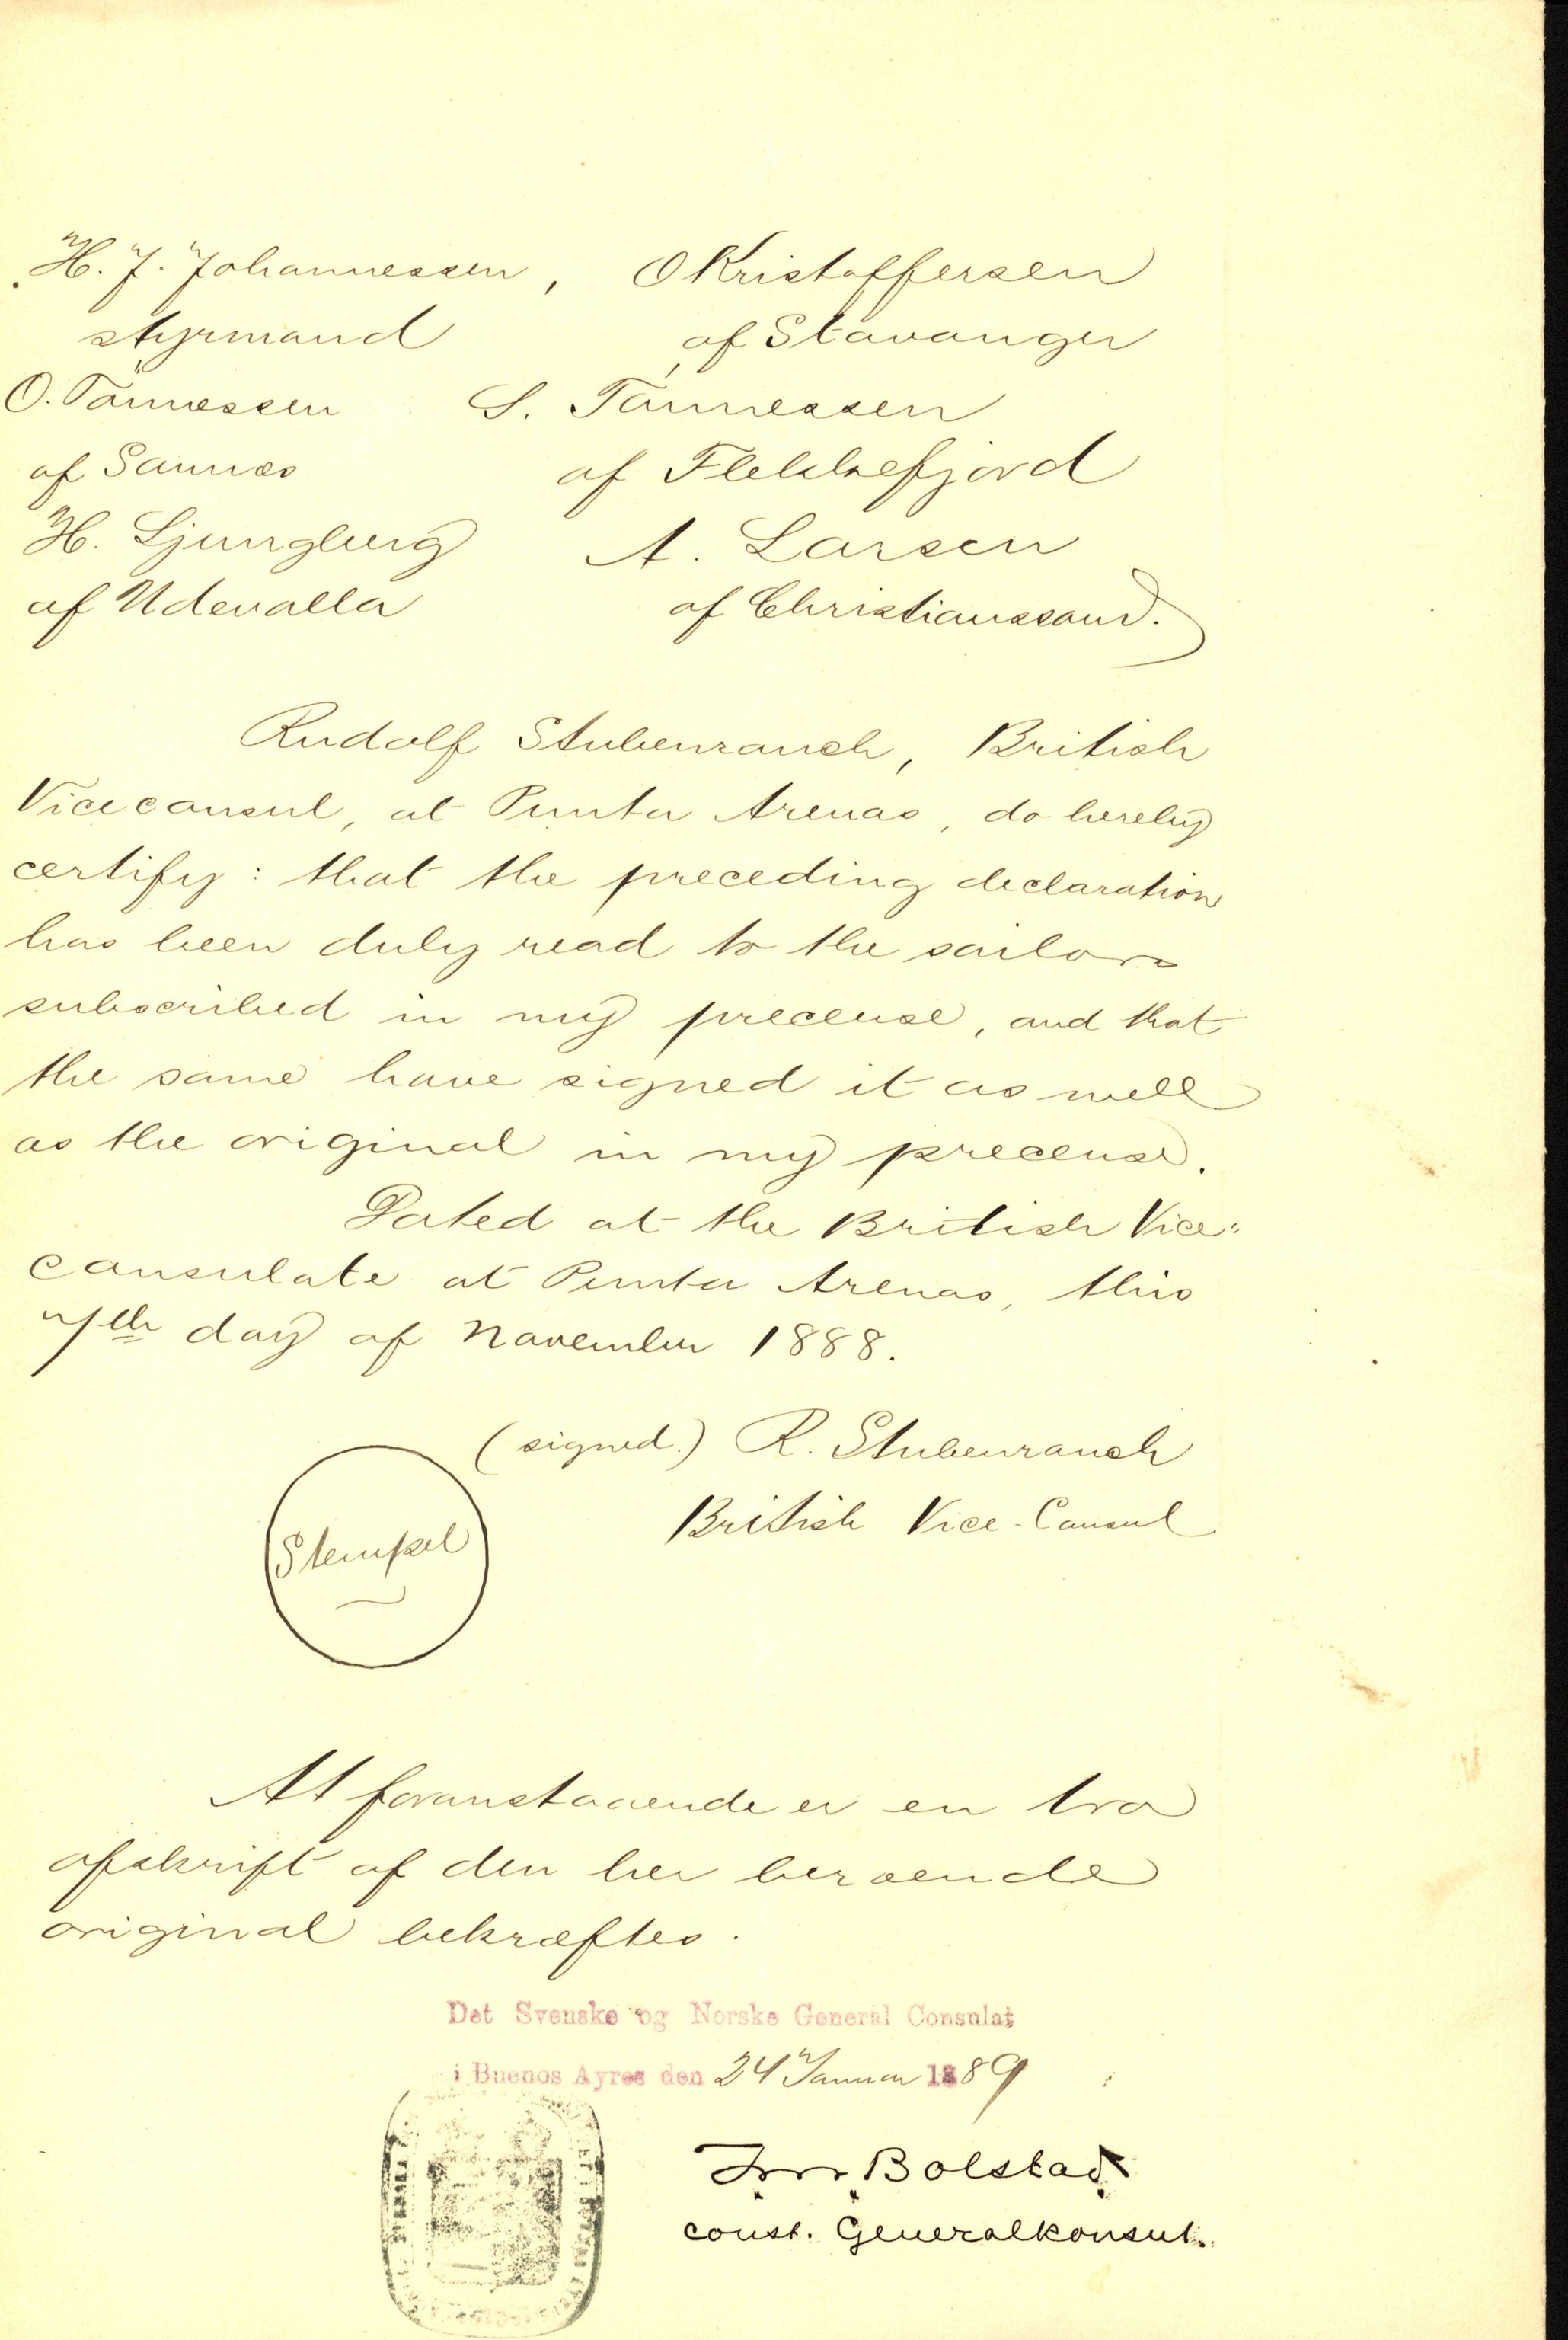 H. J. Johannessen, O Kristoffersen
styrmand af Stavanger
O. Tönnessen S. Tönnessen
af Sannes af Flekkefjord
H. Ljungberg A. Larsen
af Udevalla af Christianssand.
Rudolf Stubenrauch, British
Viceconsul, at Punta Arenas, do hereby
certify: that the preceding declaration
has been duly read to the sailors
subscribed in my precense, and that
the same have signed it as well
as the original in my precense.
Dated at the British Vice-
consulate at Punta Arenas, this
7th day of November 1888.
(signed.) R. Stubenrauch
British Vice-Consul
Stempel
At foranstaaende er en tro
afskrift af den her beroende
original bekræftes.
Det Svenske og Norske General Consulat
i Buenos Ayres den 24 Januar 1889
Bolstad
const. Generalkonsul.